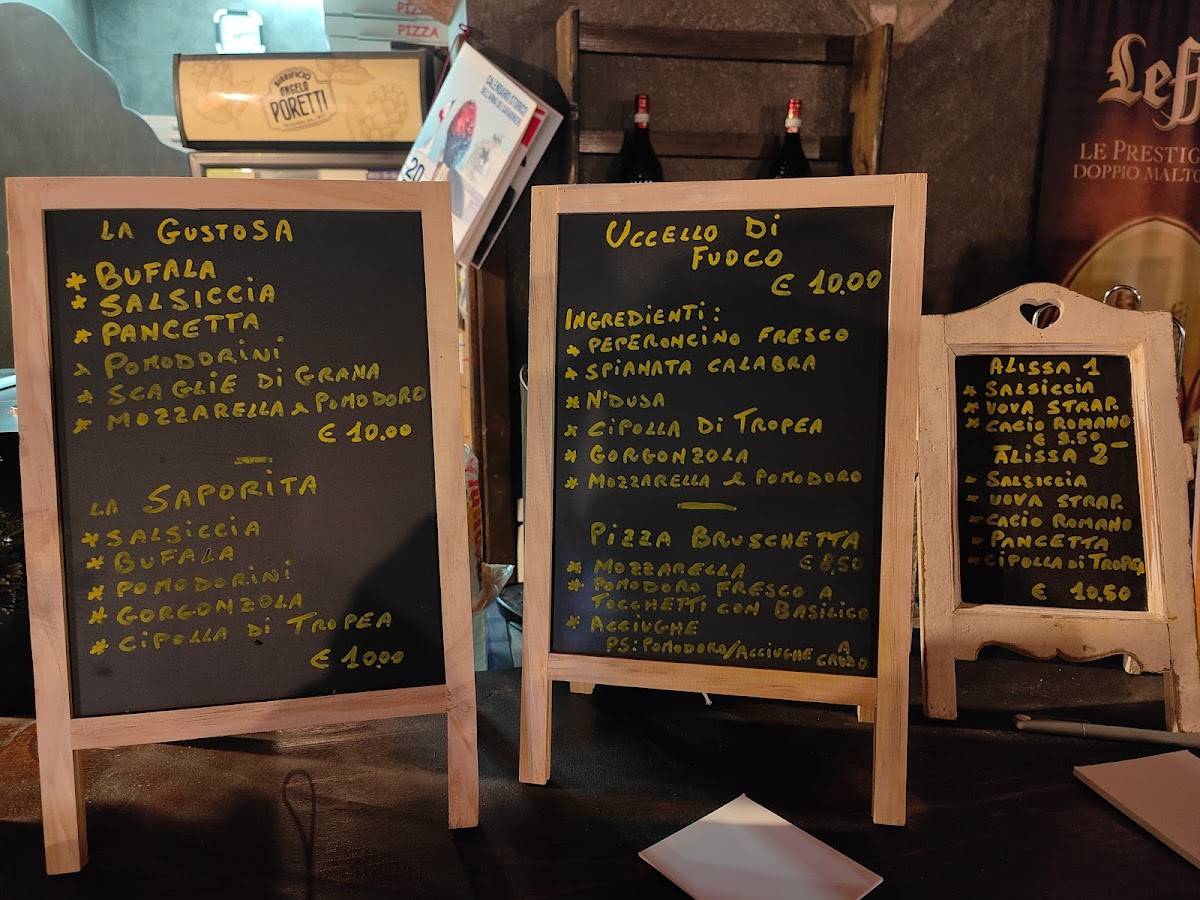 PIZZA
PIZZA
BIRRIFICIO
ANGELO
PORETTI
CALENDARIO STORICO
DELL'ARMA DEI CARABINIERI
20
Leff
LE PRESTIG
DOPPIO MALTO
LA GUSTOSA
* BUFALA
* SALSICCIA
* PANCETTA
* POMODORINI
* SCAGLIE DI GRANA
* MOZZARELLA e POMODORO
€ 10.00
—
LA SAPORITA
* SALSICCIA
* BUFALA
* POMODORINI
* GORGONZOLA
* CIPOLLA DI TROPEA
€ 10.00
UCCELLO DI
FUOCO
€ 10.00
INGREDIENTI:
* PEPERONCINO FRESCO
* SPIANATA CALABRA
* N'DUSA
* CIPOLLA DI TROPEA
* GORGONZOLA
* MOZZARELLA e POMODORO
—
PIZZA BRUSCHETTA
* MOZZARELLA € 8,50
* POMODORO FRESCO A
TOCCHETTI CON BASILICO
* ACCIUGHE
PS: POMODORO/ACCIUGHE A CRUDO
ALISSA 1
* SALSICCIA
* UOVA STRAP.
* CACIO ROMANO
€ 9.50
ALISSA 2
- SALSICCIA
- UOVA STRAP.
- CACIO ROMANO
- PANCETTA
- CIPOLLA DI TROPEA
€ 10.50